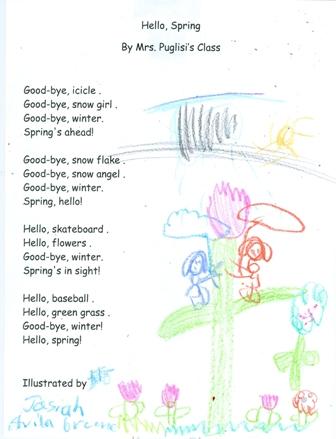 Hello, Spring
By Mrs. Puglisi's Class
Good-bye, icicle .
Good-bye, snow girl .
Good-bye, winter.
Spring's ahead!
Good-bye, snow flake .
Good-bye, snow angel .
Good-bye, winter.
Spring, hello!
Hello, skateboard .
Hello, flowers .
Good-bye, winter.
Spring's in sight!
Hello, baseball .
Hello, green grass .
Good-bye, winter!
Hello, spring!
Illustrated by
Josiah
Avila Greene